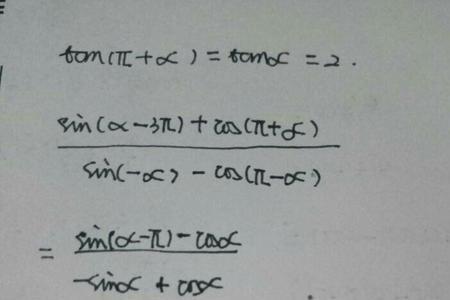 tan(π+α) = tanα = 2.
sin(α-3π)+cos(π+α)
sin(-α) - cos(π-α)
= sin(α-π)-cosα
-sinα + cosα